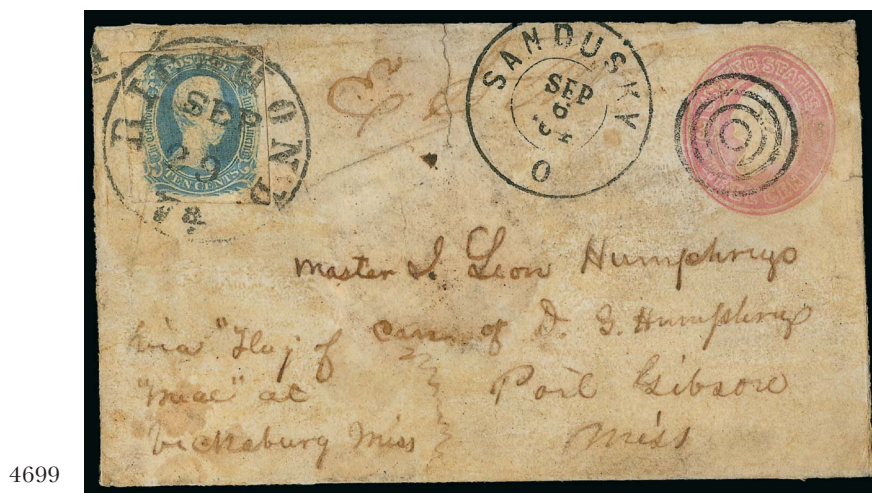 RICHMOND
VA
SEP
29
POSTAGE
TEN CENTS
SANDUSKY
SEP
6
O
UNITED STATES
Master J. Leon Humphreys
Care of D. G. Humphreys
Port Gibson
Miss
via "Flag of
at
Vicksburg Miss
4699